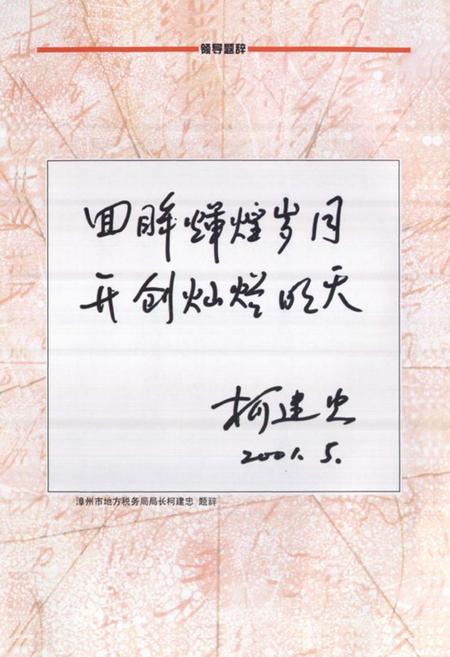 领导题辞
回眸辉煌岁月
开创灿烂明天
柯建忠
2001.5.
漳州市地方税务局局长柯建忠 题辞